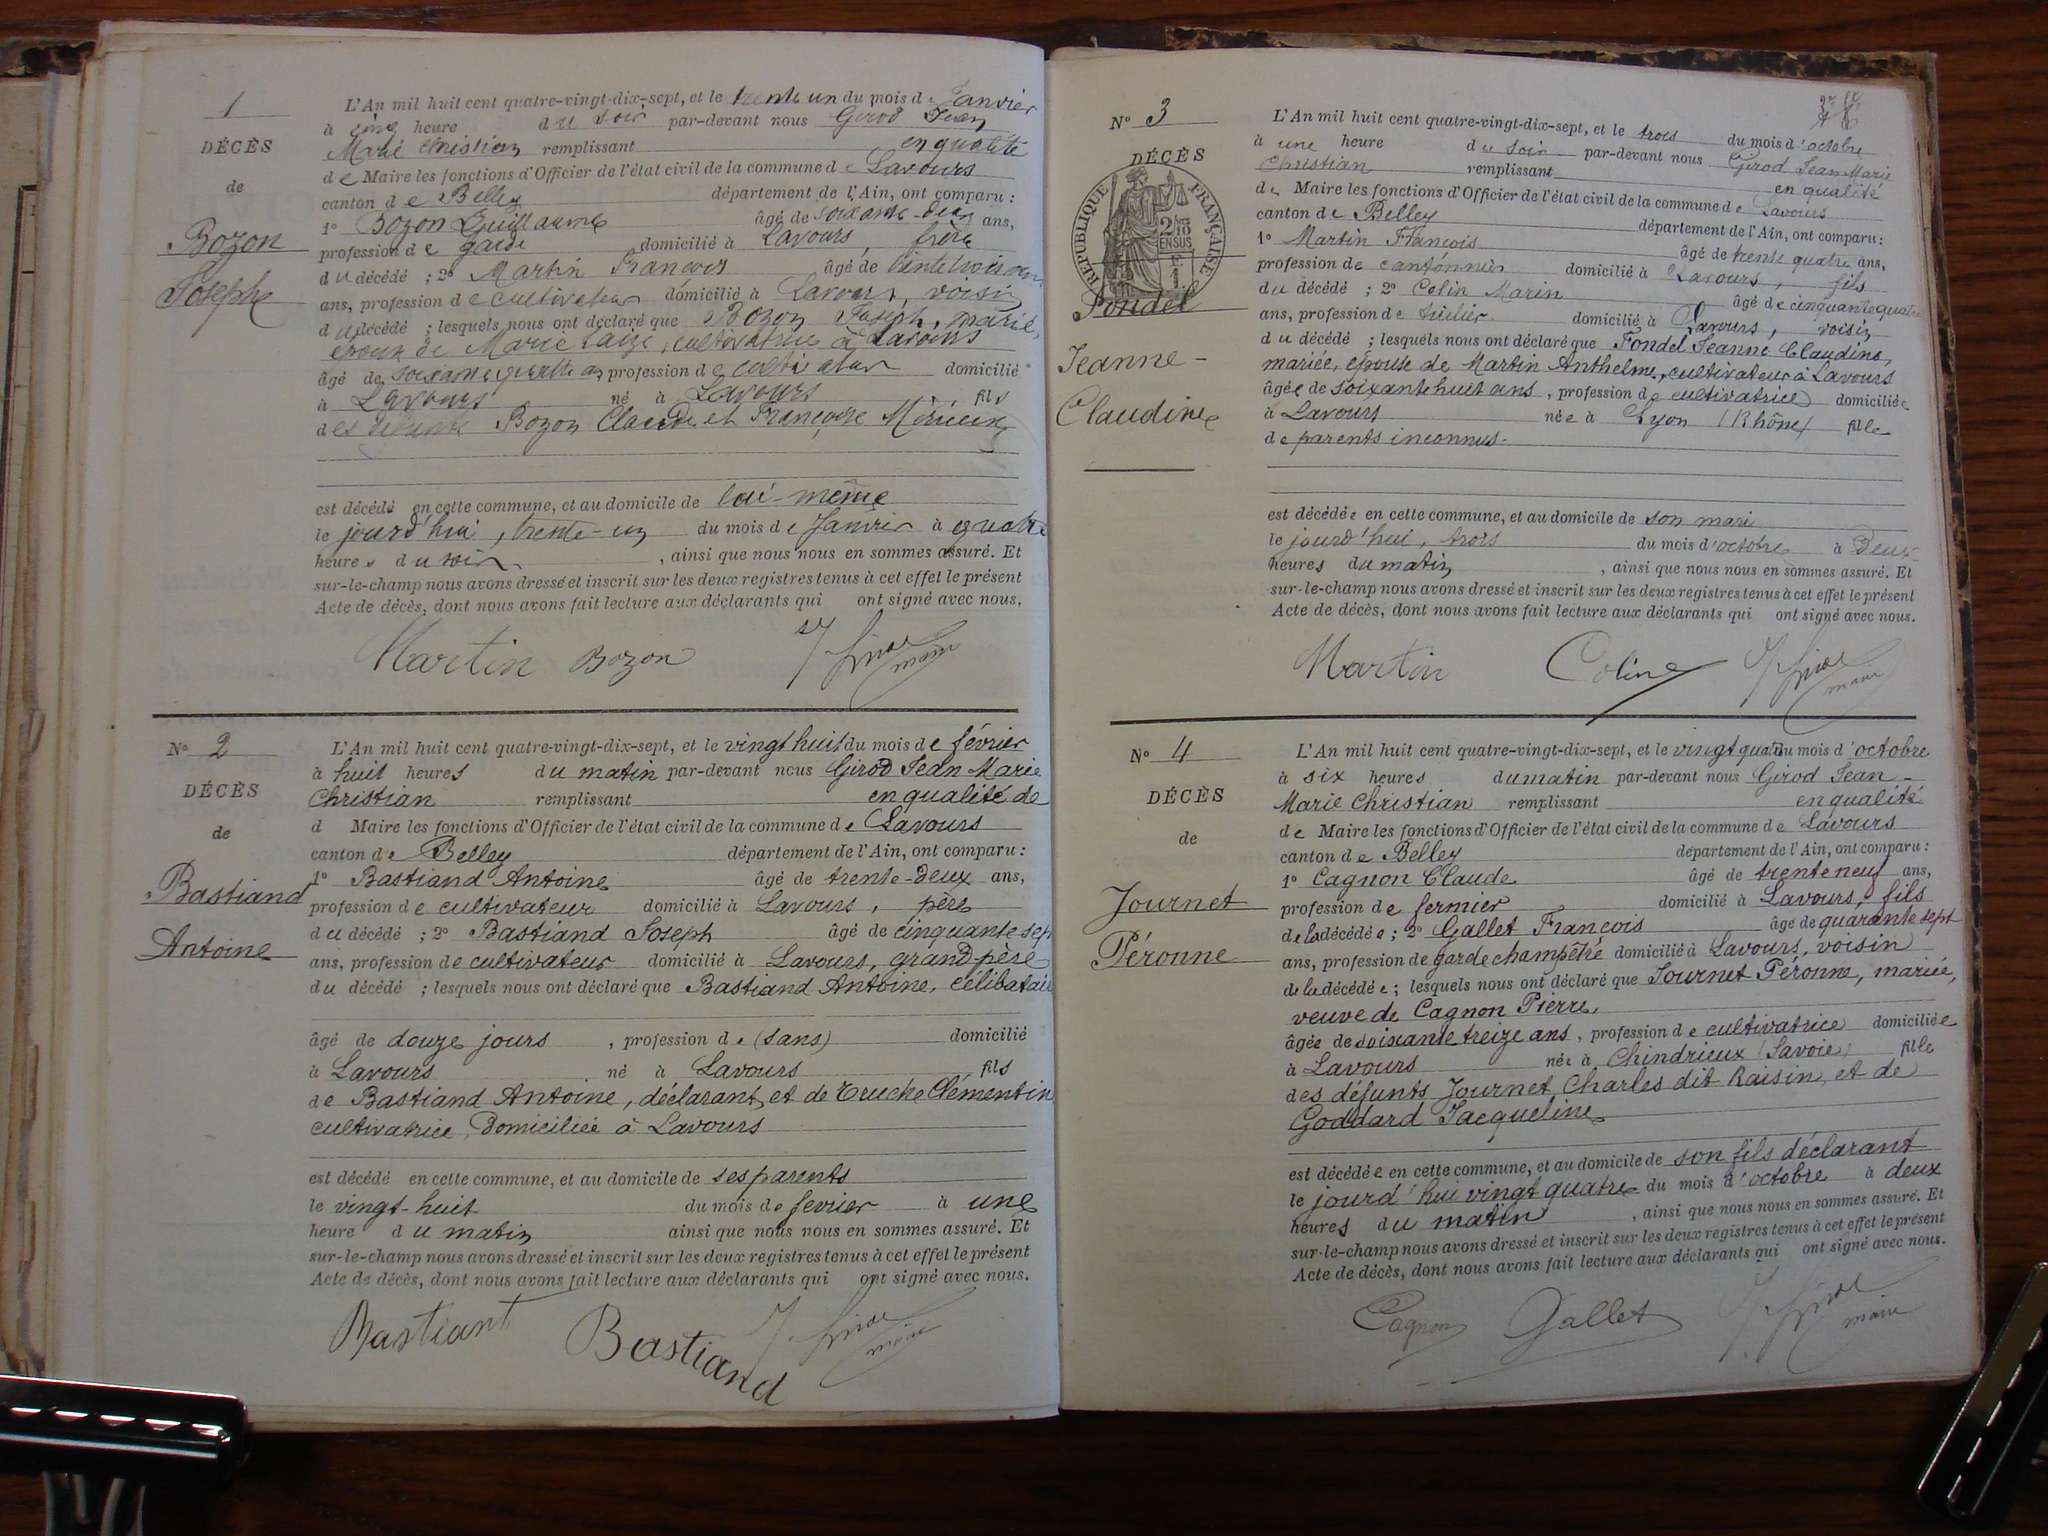 1
DÉCÈS
de
Bozon
Joseph
L'An mil huit cent quatre-vingt-dix-sept, et le trente un du mois de Janvier
à cinq heure du soir par-devant nous Girod Jean
Marie Christian remplissant en qualité
de Maire les fonctions d'Officier de l'état civil de la commune de Lavours
canton de Belley département de l'Ain, ont comparu :
1º Bozon Guillaume âgé de soixante-deux ans,
profession de garde domicilié à Lavours, frère
du décédé ; 2º Martin François âgé de trente trois ans
ans, profession de cultivateur domicilié à Lavours, voisin
du décédé ; lesquels nous ont déclaré que Bozon Joseph, marié,
époux de Marie , cultivatrice à Lavours
âgé de soixante quatre ans profession de cultivateur domicilié
à Lavours né à Lavours fils
des défunts Bozon Claude et Françoise Mérieux
est décédé en cette commune, et au domicile de lui-même
le jourd'hui, trente-un du mois de Janvier à quatre
heures du soir , ainsi que nous nous en sommes assuré. Et
sur-le-champ nous avons dressé et inscrit sur les deux registres tenus à cet effet le présent
Acte de décès, dont nous avons fait lecture aux déclarants qui ont signé avec nous.
Martin Bozon J Girod
maire
Nº 2
DÉCÈS
de
Bastiand
Antoine
L'An mil huit cent quatre-vingt-dix-sept, et le vingt huit du mois de février
à huit heures du matin par-devant nous Girod Jean Marie
Christian remplissant en qualité de
d Maire les fonctions d'Officier de l'état civil de la commune de Lavours
canton de Belley département de l'Ain, ont comparu :
1º Bastiand Antoine âgé de trente-deux ans,
profession de cultivateur domicilié à Lavours, père
du décédé ; 2º Bastiand Joseph âgé de cinquante sept
ans, profession de cultivateur domicilié à Lavours, grand père
du décédé ; lesquels nous ont déclaré que Bastiand Antoine, célibatair
âgé de douze jours , profession de (sans) domicilié
à Lavours né à Lavours fils
de Bastiand Antoine, déclarant et de Truche Clémentin
cultivatrice, domiciliée à Lavours
est décédé en cette commune, et au domicile de ses parents
le vingt-huit du mois de fevrier à une
heure du matin ainsi que nous nous en sommes assuré. Et
sur-le-champ nous avons dressé et inscrit sur les deux registres tenus à cet effet le présent
Acte de décès, dont nous avons fait lecture aux déclarants qui ont signé avec nous.
Bastiant Bastiand J. Girod
maire
Nº 3
DÉCÈS
RÉPUBLIQUE FRANÇAISE
2/10
EN SUS
F.
1.
Fondel
Jeanne-
Claudine
L'An mil huit cent quatre-vingt-dix-sept, et le trois du mois d'octobre
à une heure du soir par-devant nous Girod Jean Marie
Christian remplissant en qualité
de Maire les fonctions d'Officier de l'état civil de la commune de Lavours
canton de Belley département de l'Ain, ont comparu :
1º Martin François âgé de trente quatre ans,
profession de cantonnier domicilié à Lavours, fils
du décédé ; 2º Colin Marin âgé de cinquante quatre
ans, profession de domicilié à Lavours, voisin
du décédé ; lesquels nous ont déclaré que Fondel Jeanne Claudine,
mariée, épouse de Martin Anthelme, cultivateur à Lavours
âgée de soixante huit ans, profession de cultivatrice domiciliée
à Lavours née à Lyon (Rhône) fille
de parents inconnus.
est décédée en cette commune, et au domicile de son mari
le jourd'hui, trois du mois d'octobre à Deux
heures du matin , ainsi que nous nous en sommes assuré. Et
sur-le-champ nous avons dressé et inscrit sur les deux registres tenus à cet effet le présent
Acte de décès, dont nous avons fait lecture aux déclarants qui ont signé avec nous.
Martin Coline J Girod
maire
Nº 4
DÉCÈS
de
Journet
Péronne
L'An mil huit cent quatre-vingt-dix-sept, et le vingt quatre du mois d'octobre
à six heures du matin par-devant nous Girod Jean-
Marie Christian remplissant en qualité
de Maire les fonctions d'Officier de l'état civil de la commune de Lavours
canton de Belley département de l'Ain, ont comparu :
1º Cagnon Claude âgé de trente neuf ans,
profession de fermier domicilié à Lavours, fils
de la décédée ; 2º Gallet François âgé de quarante sept
ans, profession de garde champêtre domicilié à Lavours, voisin
de la décédée ; lesquels nous ont déclaré que Journet Péronne, mariée,
veuve de Cagnon Pierre,
âgée de soixante treize ans, profession de cultivatrice domiciliée
à Lavours née à Chindrieux (Savoie) fille
des défunts Journet Charles dit Raisin, et de
Goddard Jacqueline
est décédée en cette commune, et au domicile de son fils déclarant
le jourd'hui vingt quatre du mois d'octobre à deux
heures du matin , ainsi que nous nous en sommes assuré. Et
sur-le-champ nous avons dressé et inscrit sur les deux registres tenus à cet effet le présent
Acte de décès, dont nous avons fait lecture aux déclarants qui ont signé avec nous.
Cagnon Gallet J Girod
maire